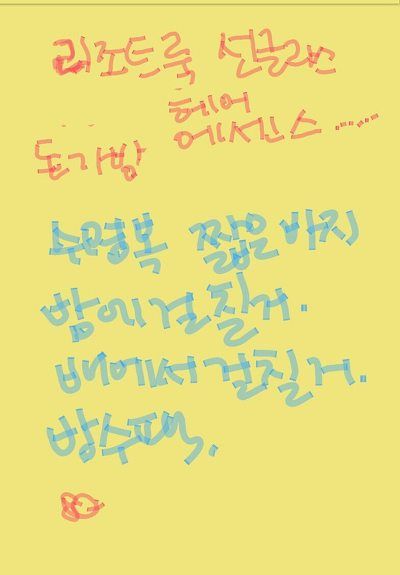 리조트룩 선글라스
헤어
돈가방 에센스 .....
수영복 짧은바지
밤에걸칠거.
배에서걸칠거.
방수팩.